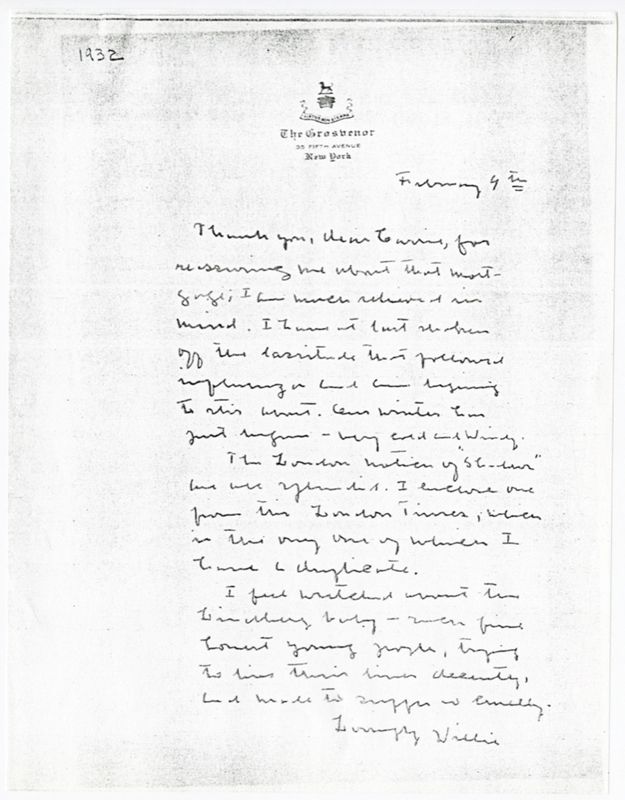 1932
The Grosvenor
35 FIFTH AVENUE
New York
February 9th
Thank you, dear Carrie, for
reassuring me about that mort-
gage; I am much relieved in
mind. I have at last shaken
off the lassitude that followed
influenza and am begining
to stir about. Our winter has
just begun – very cold and windy.
The London notices of "Shadows"
are all splendid. I enclose one
from the London Times, which
is the only one of which I
have a duplicate.
I feel wretched about the
Lindberg baby – such fine
honest young people, trying
to live their lives decently,
and made to suffer so cruelly.
Lovingly Willie